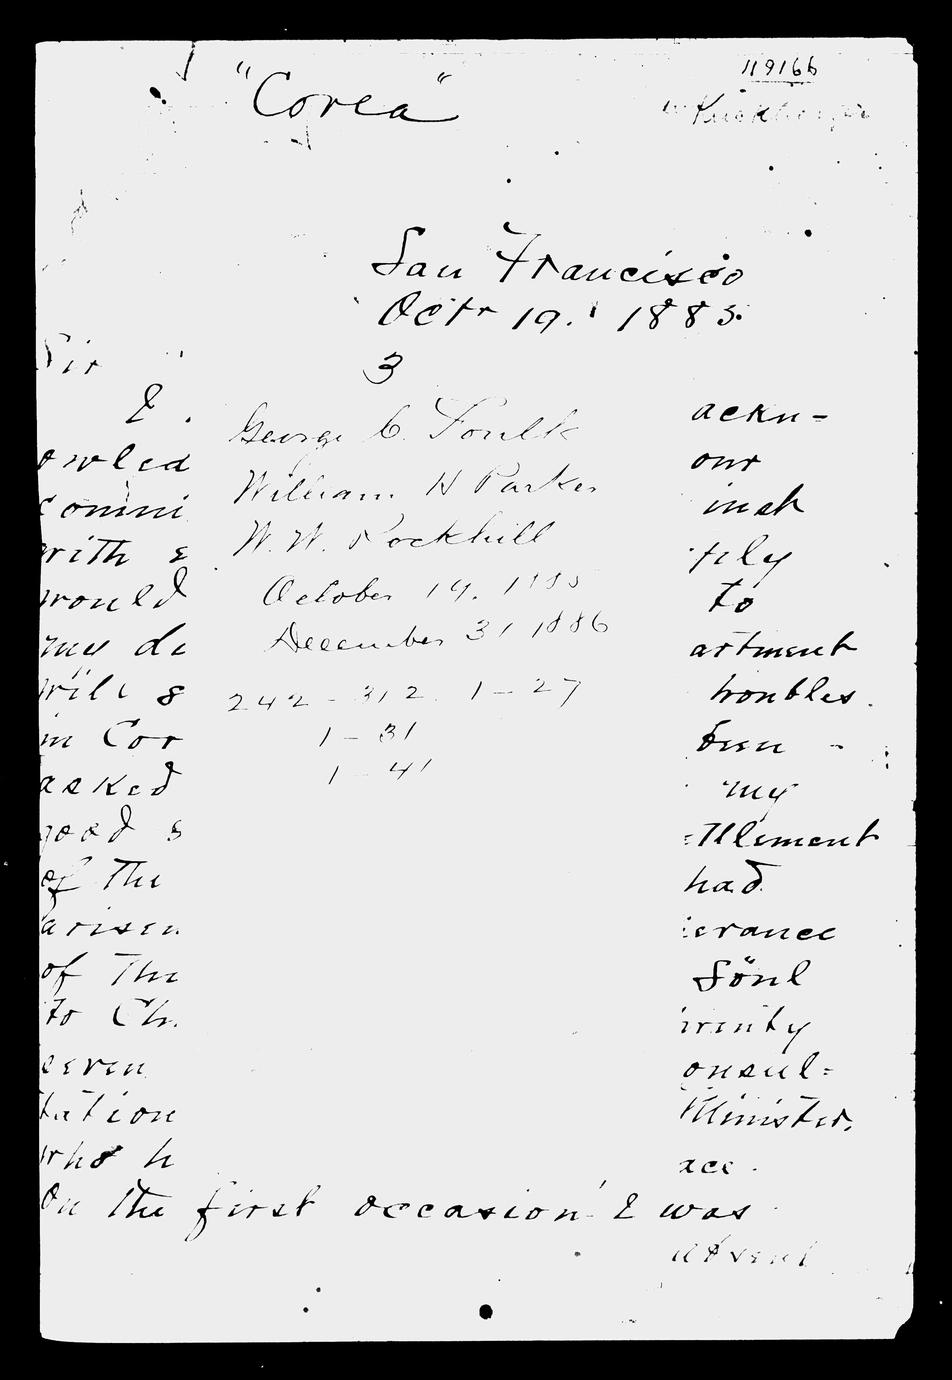 "Corea"
119166
San Francisco
Octr 19. 1885.
Sir
3
I
ackn=
George C. Foulk
owled
our
William H Parker
commi
inst
W. W. Rockhill
with
October 19, 1885
would
to
December 31 1886
my de
artment
will
troubles.
242 - 312. 1 - 27
in Cor
been
1 - 31
asked
my
1 - 41
good s
ttlement
of the
had
arisen
erance
of the
Söul
to Ch
seven
onsul=
tation
Minister,
who h
ace.
On the first occasion I was
absent